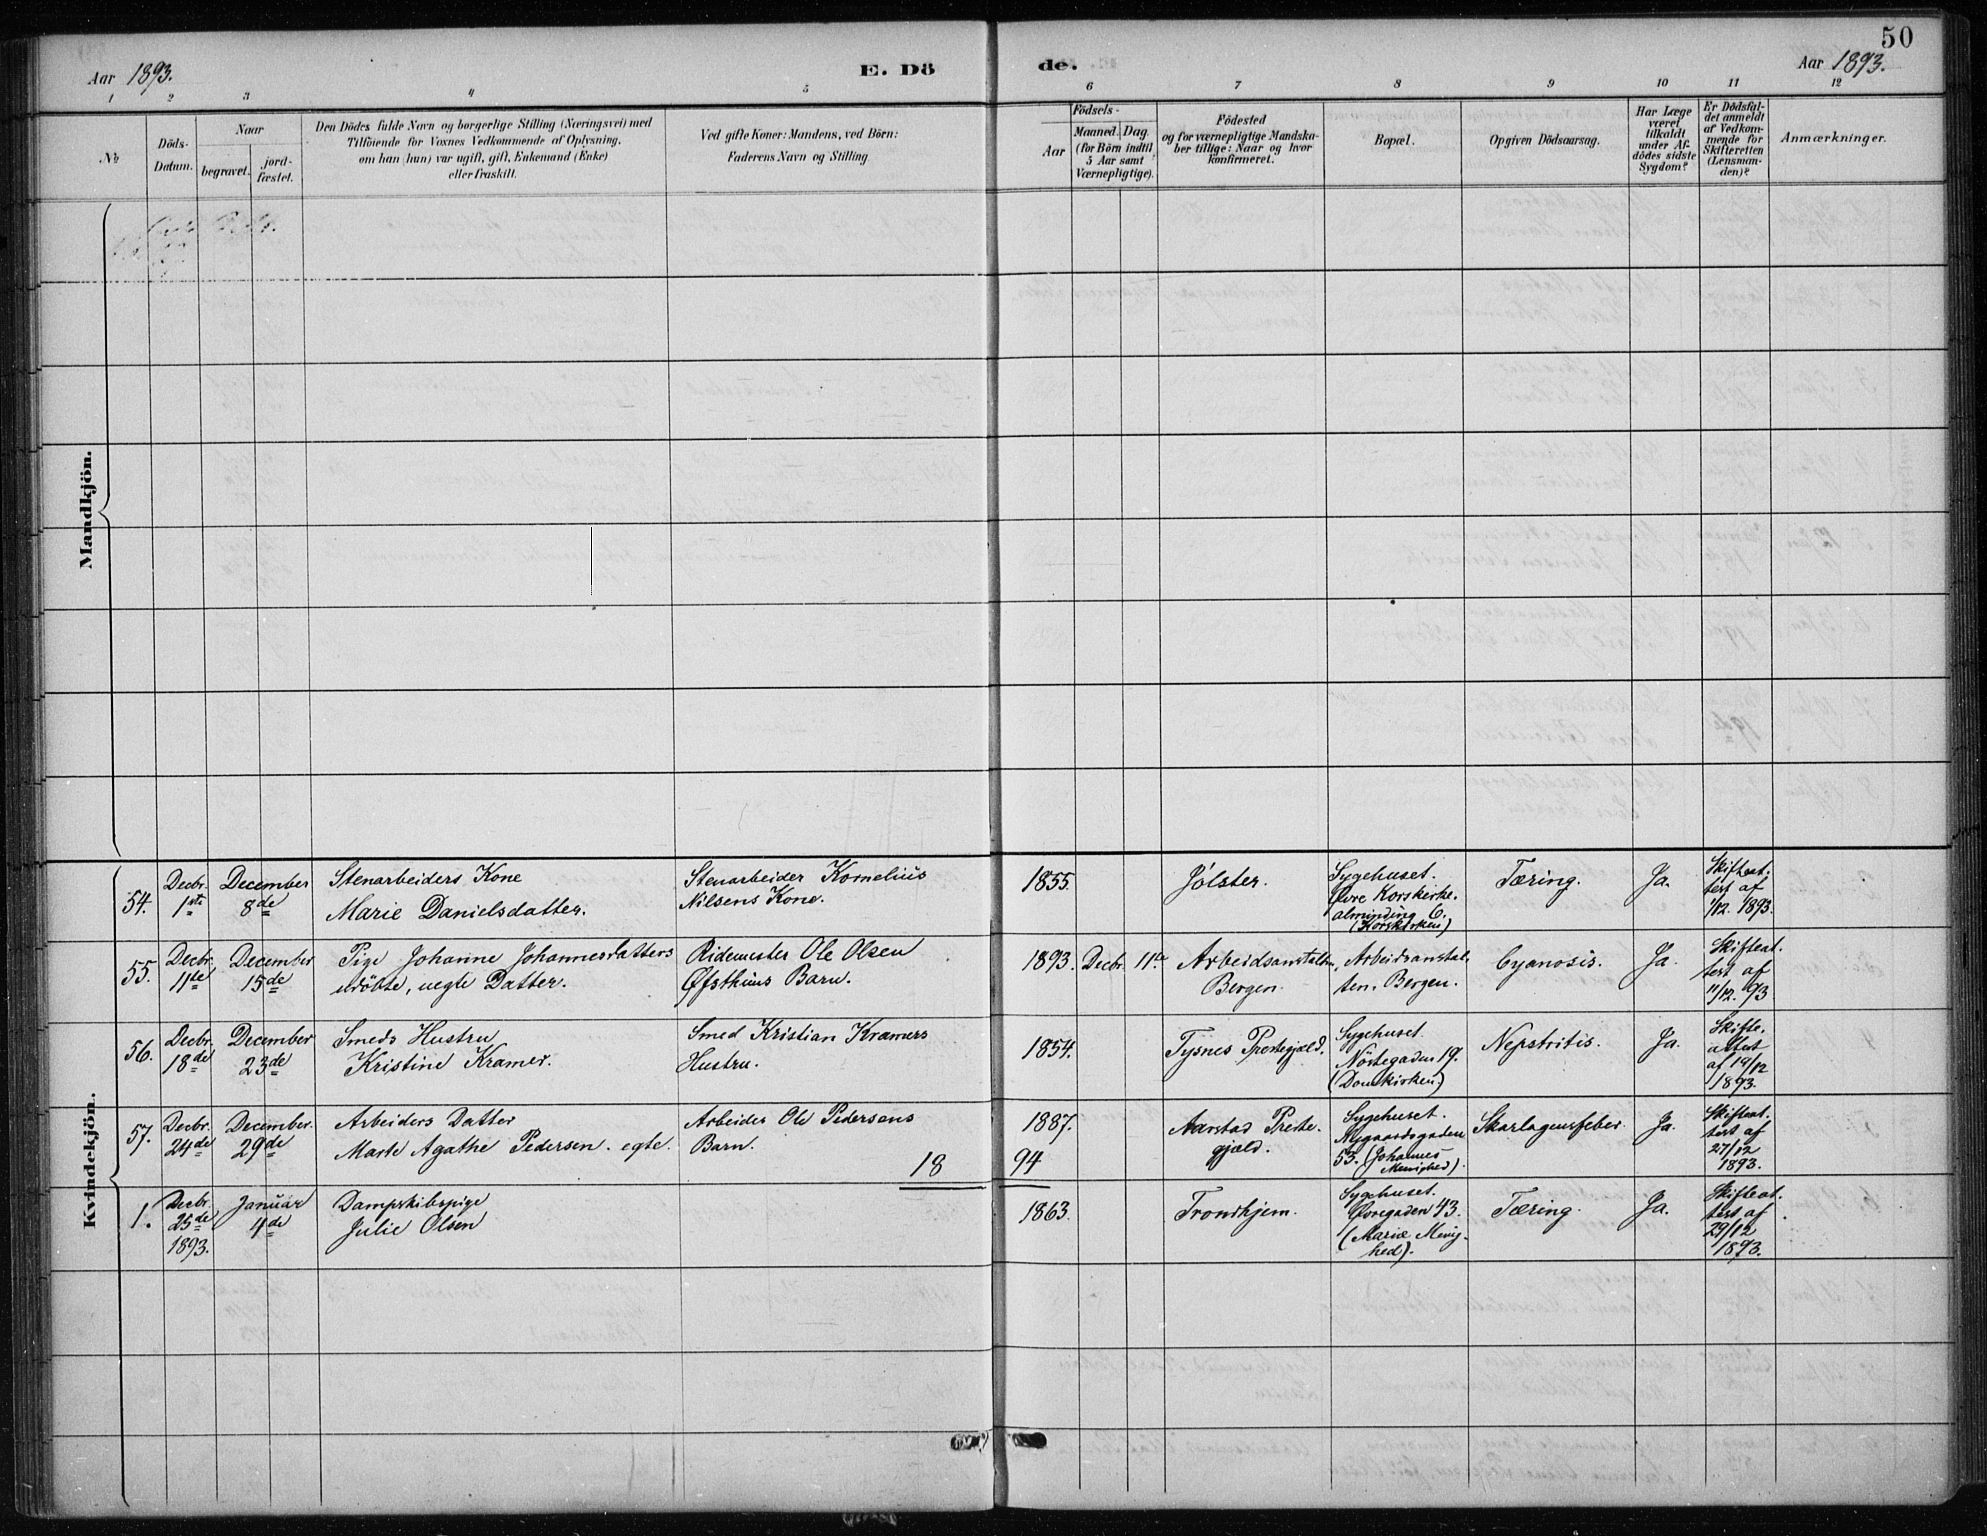 50
Aar 1893.
E. Dö
de.
Aar 1893.
1 2 3 4 5 6 7 8 9 10 11 12
№
Döds-
Datum.
Naar
begravet.
jord-
fæstet.
Den Dödes fulde Navn og borgerlige Stilling (Næringsvei) med
Tilföiende for Voxnes Vedkommende af Oplysning,
om han (hun) var ugift, gift, Enkemand (Enke)
eller fraskilt.
Ved gifte Koner: Mandens, ved Börn:
Faderens Navn og Stilling.
Födsels-
Aar
Maaned. Dag.
(for Börn indtil
5 Aar samt
Værnepligtige).
Födested
og for værnepligtige Mandska-
ber tillige: Naar og hvor
konfirmeret.
Bopæl.
Opgiven Dödsaarsag.
Har Læge
været
tilkaldt
under Af-
dödes sidste
Sygdom?
Er Dödsfal-
det anmeldt
af Vedkom-
mende for
Skifteretten
(Lensman-
den)?
Anmærkninger.
Mandkjön.
Kvindekjön.
54.
Decbr.
1ste
December
8de
Stenarbeiders Kone
Marie Danielsdatter.
Stenarbeider Kornelius
Nilsens Kone.
1855.
Jölster.
Sygehuset.
Øvre Korskirke-
alminding 6.
(Korskirken)
Tæring.
Ja.
Skifteat-
test af
1/12. 1893.
55.
Decbr.
11te
December
15de
Pige Johanne Johannesdatters
udöbte, uegte Datter.
Ole Olsen
Barn.
1893. Decbr. 11te
Arbeidsanstalten,
Bergen.
Arbeidsanstal-
ten. Bergen.
Cyanosis.
Ja.
Skifteat-
test af
11/12. 93
56.
Decbr.
18de
December
23de
Smeds Hustru
Kristine Kramer.
Smed Kristian Kramers
Hustru.
1854.
Tysnes Prestegjeld.
Sygehuset.
Nöstegaden 19.
(Domkirken.)
Ja.
Skifte-
attest
af 19/12
1893.
57.
Decbr.
24de
December.
29de
Arbeiders Datter
Marte Agathe Pedersen. egte.
Arbeider Ole Pedersens
Barn.
18
1887.
94
Aarstad Preste-
gjæld.
Sygehuset.
Nygaardsgaden
53. (Johannes
Menighed).
Skarlagensfeber.
Ja.
Skifteat-
test af
27/12
1893.
1.
Decbr.
25de
1893.
Januar
4de
Dampskibspige
Julie Olsen
1863.
Trondhjem.
Sygehuset.
Øvregaden 43.
(Mariæ Menig-
hed).
Tæring.
Ja.
Skifteat-
test af
29/12
1893.